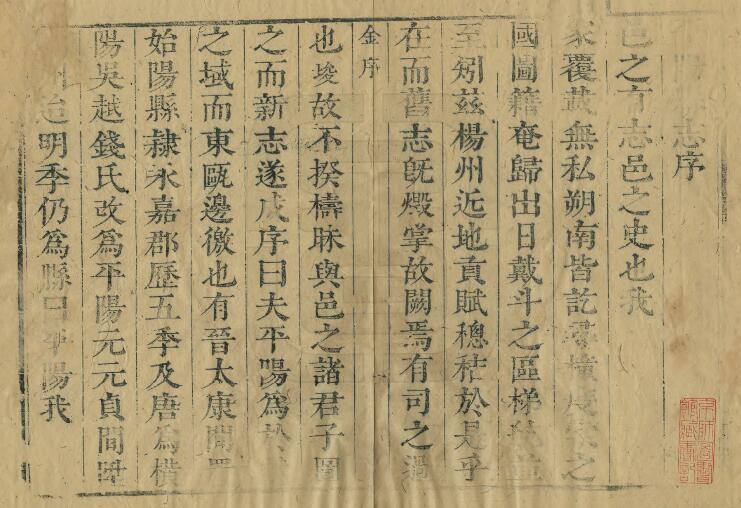 志序
邑之有志邑之史也我
家覆載無私朔南皆訖
之
國圖籍奄歸出日戴斗之區梯
至矧茲楊州近地貢賦穗秸於是乎
在而舊志旣燬掌故闕焉有司之
金序
也埈故不揆檮昧與邑之諸君子圖
之而新志遂成序曰夫平陽爲於
之域而東甌邊徼也有晉太康間置
始陽縣隷永嘉郡歷五季及唐爲橫
陽吳越錢氏攺爲平陽元元貞間陞
迨明季仍爲縣曰平陽我